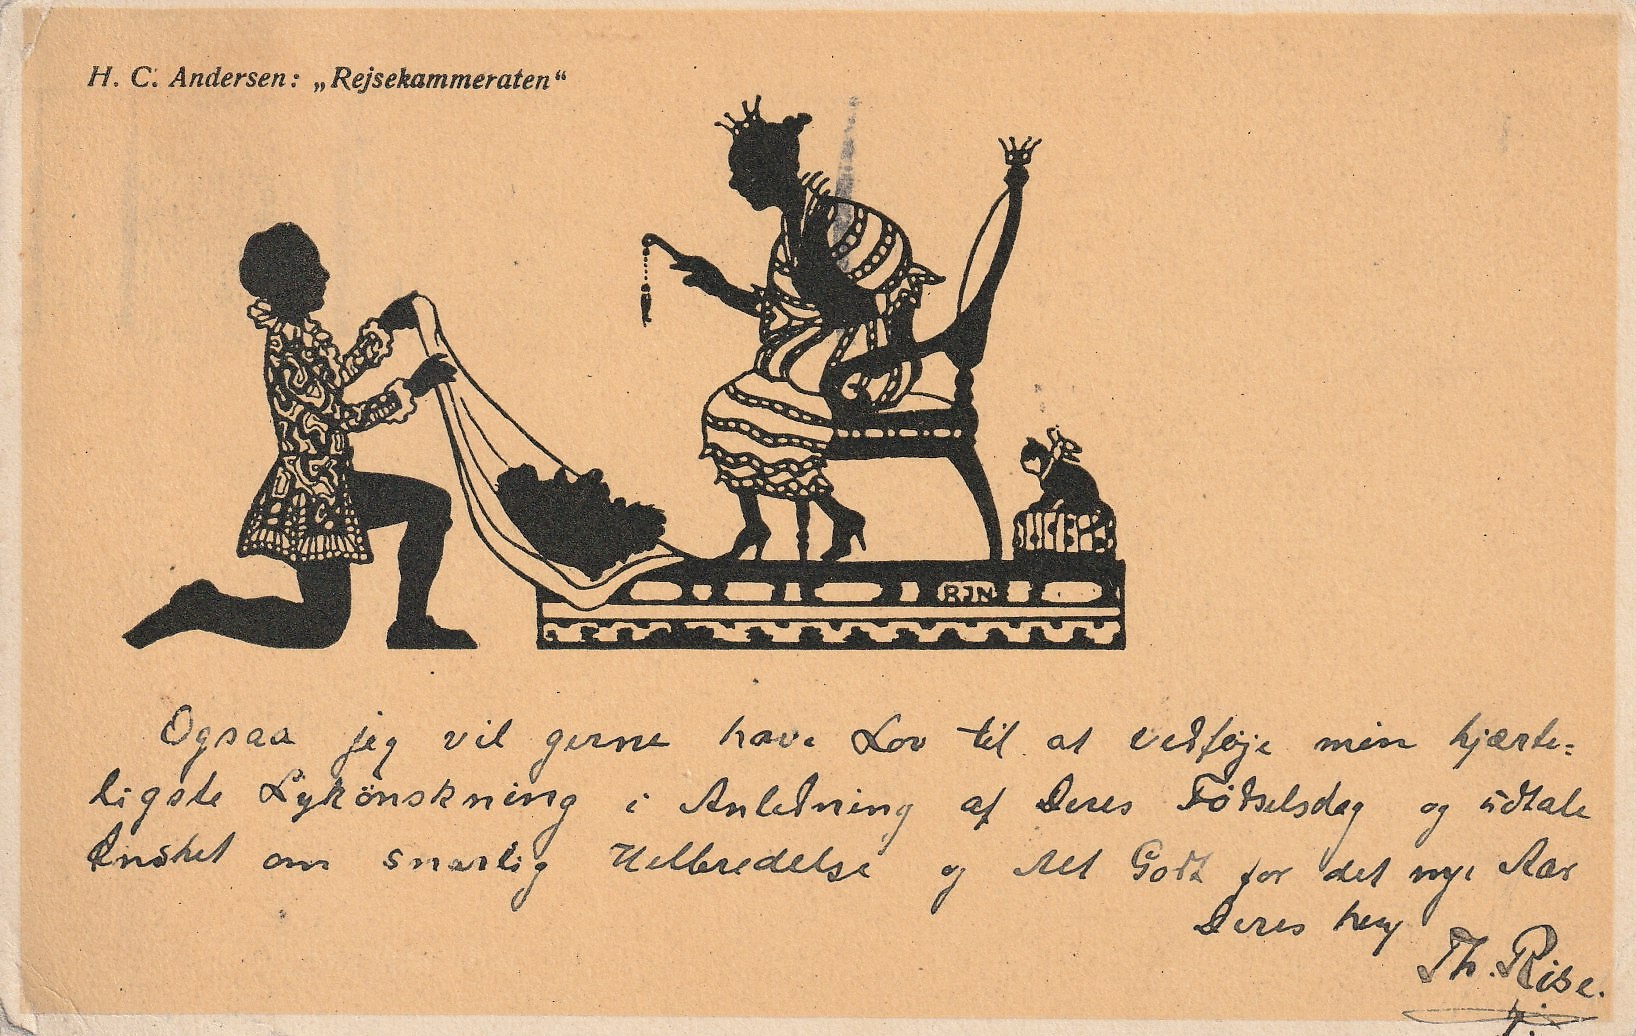 H. C. Andersen: „Rejsekammeraten“
RJN
Ogsaa jeg vil gerne have Lov til at vedføje min hjærte=
ligste Lykönskning i Anledning af Deres Fødselsdag og udtale
Ønsket om snarlig Helbredelse og Alt Godt for det nye Aar
Deres
Th. Riise.